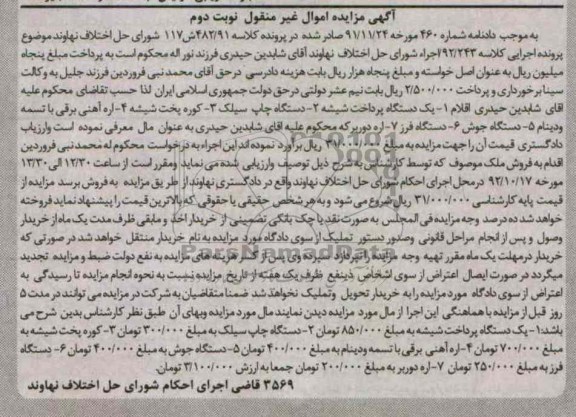 آگهی مزایده اموال غیر منقول نوبت دوم
به موجب دادنامه شماره ۴۶۰ مورخه ۹۱/۱۱/۲۴ صادر شده در پرونده کلاسه ۴۸۲/۹۱ش۱۱۷ شورای حل اختلاف نهاوند موضوع
پرونده اجرایی کلاسه ۹۲/۲۴۳اجراء شورای حل اختلاف نهاوند آقای شابدین حیدری فرزند نور اله محکوم است به پرداخت مبلغ پنجاه
میلیون ریال به عنوان اصل خواسته و مبلغ پنجاه هزار ریال بابت هزینه دادرسی در حق آقای محمد نبی فروردین فرزند جلیل به وکالت
سینا برخورداری و پرداخت ۲/۵۰۰/۰۰۰ ریال بابت نیم عشر دولتی در حق دولت جمهوری اسلامی ایران لذا حسب تقاضای محکوم علیه
آقای شابدین حیدری اقلام ۱- یک دستگاه پرداخت شیشه ۲- دستگاه چاپ سیلک ۳- کوره پخت شیشه ۴- اره آهنی برقی با تسمه
ودینام ۵- دستگاه جوش ۶- دستگاه فرز ۷- اره دوربر که محکوم علیه اقای شابدین حیدری به عنوان مال معرفی نموده است وارزیاب
دادگستری قیمت آن را جهت مزایده به مبلغ ۳۱/۰۰۰/۰۰۰ ریال برآورد نموده اند این اجراء به درخواست محکوم له محمد نبی فروردین
اقدام به فروش ملک موصوف که توسط کارشناس به شرح ذیل توصیف وارزیابی شده می نماید و مقرر است از ساعت ۱۲/۳۰ الی ۱۳/۳۰
مورخه ۹۲/۱۰/۱۷ در محل اجرای احکام شورای حل اختلاف نهاوند واقع در دادگستری نهاوند از طریق مزایده به فروش برسد مزایده از
قیمت پایه کارشناسی ۳۱/۰۰۰/۰۰۰ ریال شروع می شود و به هر شخص حقیقی یا حقوقی که بالاترین قیمت را پیشنهاد نماید فروخته
خواهد شد ده درصد وجه مزایده فی المجلس به صورت نقد یا چک بانکی تضمینی از خریدار اخذ و مابقی ظرف مدت یک ماه از خریدار
وصول و پس از انجام مراحل قانونی وصدور دستور تملیک از سوی دادگاه مورد مزایده به نام خریدار منتقل خواهد شد در صورتی که
خریدار در مهلت یک ماه مقرر تهیه وجه مزایده را نپردازد سپرده وی پس از کسر هزینه های مزایده به نفع دولت ضبط و مزایده تجدید
میگردد در صورت ایصال اعتراض از سوی اشخاص ذینفع ظرف یک هفته از تاریخ مزایده نسبت به نحوه انجام مزایده تا رسیدگی به
اعتراض از سوی دادگاه مورد مزایده را به خریدار تحویل وتملیک نخواهد شد ضمنا متقاضیان به شرکت در مزایده می توانند در مدت ۵
روز قبل از مزایده با هماهنگی این اجرا از مال مورد مزایده دیدن نمایند مال مورد مزایده وبهای آن طبق نظر کارشناس بدین شرح می
باشد: ۱- یک دستگاه پرداخت شیشه به مبلغ ۸۵۰/۰۰۰ تومان ۲- دستگاه چاپ سیلک به مبلغ ۳۰۰/۰۰۰ تومان ۳- کوره پخت شیشه به
مبلغ ۷۰۰/۰۰۰ تومان ۴- اره آهنی برقی با تسمه ودینام به مبلغ ۴۰۰/۰۰۰ تومان ۵- دستگاه جوش به مبلغ ۴۰۰/۰۰۰ تومان ۶- دستگاه
فرز به مبلغ ۲۵۰/۰۰۰ تومان ۷- اره دوربر به مبلغ ۲۰۰/۰۰۰ تومان جمعا به ارزش ۳/۱۰۰/۰۰۰ تومان.
۳۵۶۹ قاضی اجرای احکام شورای حل اختلاف نهاوند